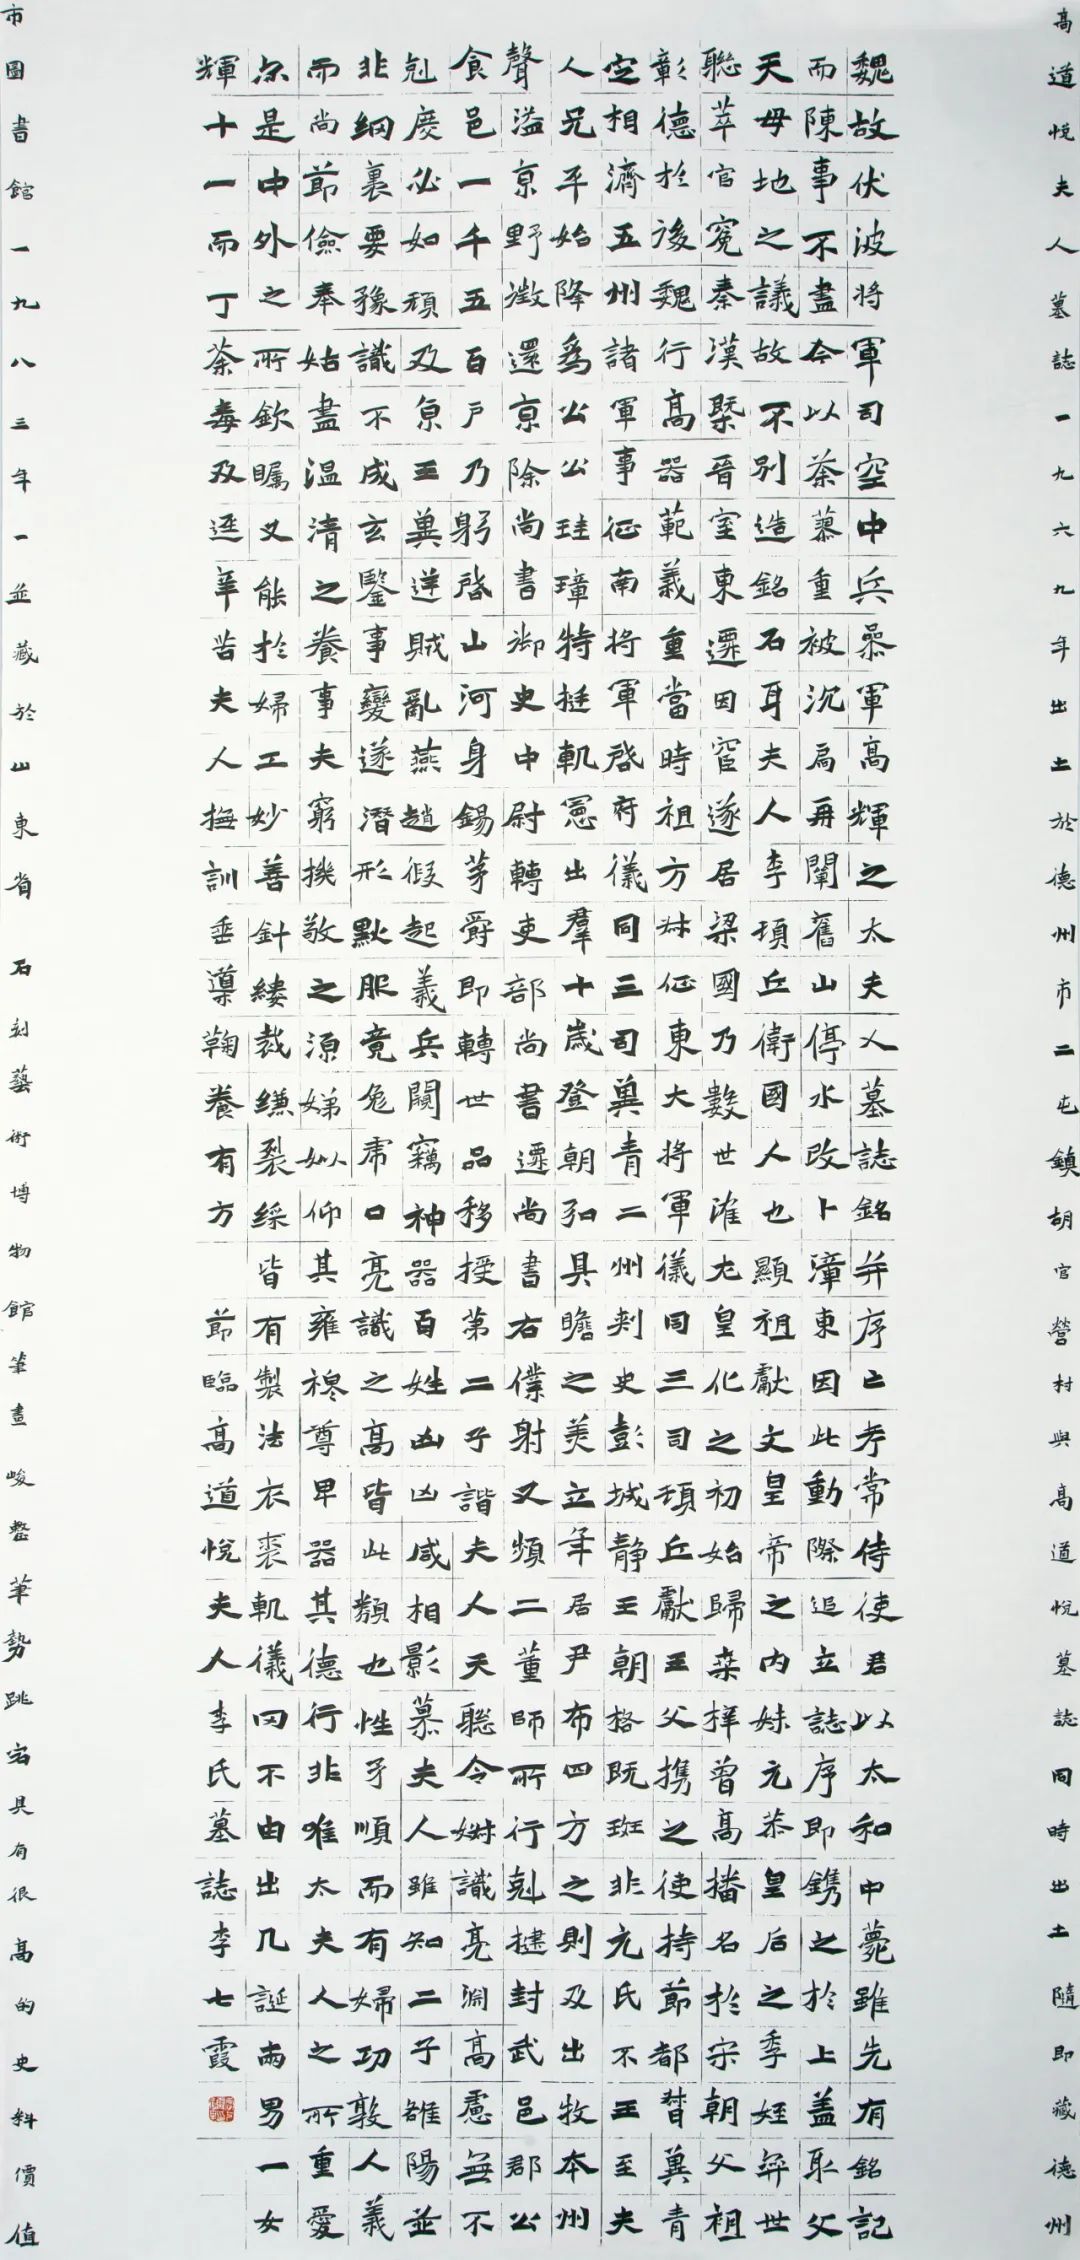 高道悅夫人墓誌一九六九年出土於德州市二屯鎮胡官營村與高道悅墓誌同時出土隨即藏德州
魏故伏波將軍司空中兵參軍高輝之太夫人墓誌銘并序亡考常侍使君以太和中薨雖先有銘記
而陳事不盡今以荼蓼重被沉扃再闡舊山停水改卜漳東因此動際追立誌序即鐫之於上蓋取父
天母地之議故不別造銘石耳夫人李頓丘衛國人也顯祖獻文皇帝之內妹元恭皇后之季姪弈世
聯萃官寃秦漢槩晉室東遷因宦遂居梁國乃數世濰尤皇化之初始歸桒梓曾高播名於宋朝父祖
彰德於後魏行高器範義重當時祖方叔征東大將軍儀同三司頓丘獻王父携之使持節都督冀青
定相濟五州諸軍事征南將軍啓府儀同三司冀青二州刺史彭城靜王朝格既斑非元氏不王至夫
人兄平始降爲公公珪璋特挺軌憲出羣十歲登朝弱具瞻之美立年居尹布四方之則及出牧本州
聲溢京野徵還京除尚書御史中尉轉吏部尚書遷尚書右僕射又頻二董師所行剋揵封武邑郡公
食邑一千五百戶乃躬啓山河身錫茅爵即轉世品移授第二子諧夫人天聰令姝識亮淵高慮無不
剋度必如頑及京王冀逆賊亂燕趙假起義兵闚竊神器百姓凶凶咸相影慕夫人雖知二子雒陽並
非綱裏要豫識不成玄鑒事變遂潛形默服竟免虎口亮識之高皆此類也性矛順而有婦功敦人義
而尚節儉奉姑盡溫清之養事夫窮撲敬之源娣姒仰其雍穆尊卑器其德行非唯太夫人之所重愛
尒是中外之所欽矚又能於婦工妙善針縷裁縑裂綵皆有製法衣裘軌儀罔不由出凡誕兩男一女
輝十一而丁荼毒及逕辛苦夫人撫訓垂導鞠養有方 節臨高道悅夫人李氏墓誌李七霞
市圖書館一九八三年一並藏於山東省石刻藝術博物館筆畫峻整筆勢跳宕具有很高的史料價值